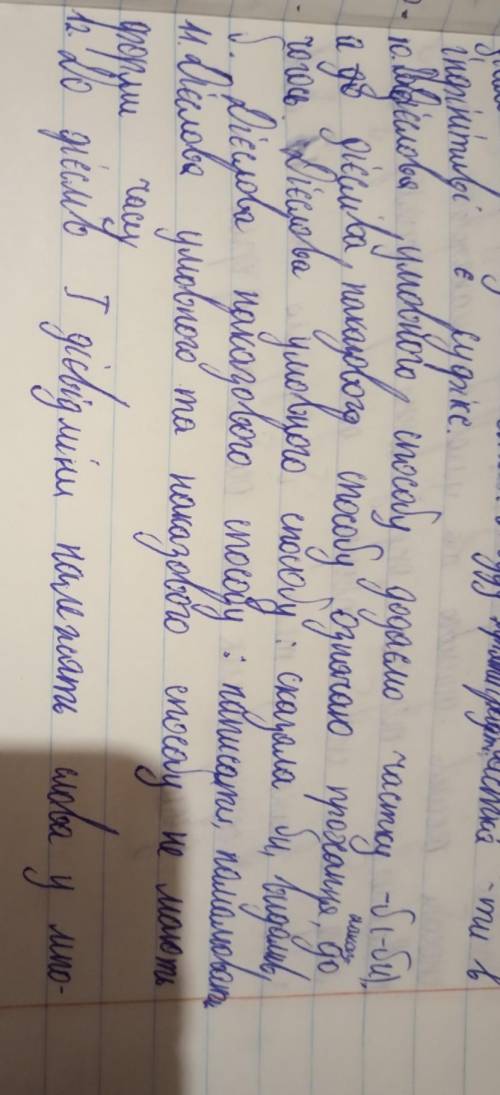 - ти в
інфінітиві є суфікс.
10. Дієслова умовного способу додаємо частку -б (-би),
а до дієслів наказового способу означаю прохання, наказ до
чогось Дієслова умовного способу: сказала би, видали
б. Дієслова наказового способу: написати, намалювати
11. Дієслова умовного та наказового способу не мають
форми часу
12. До дієслів I дієвідміни належать слова у мно-